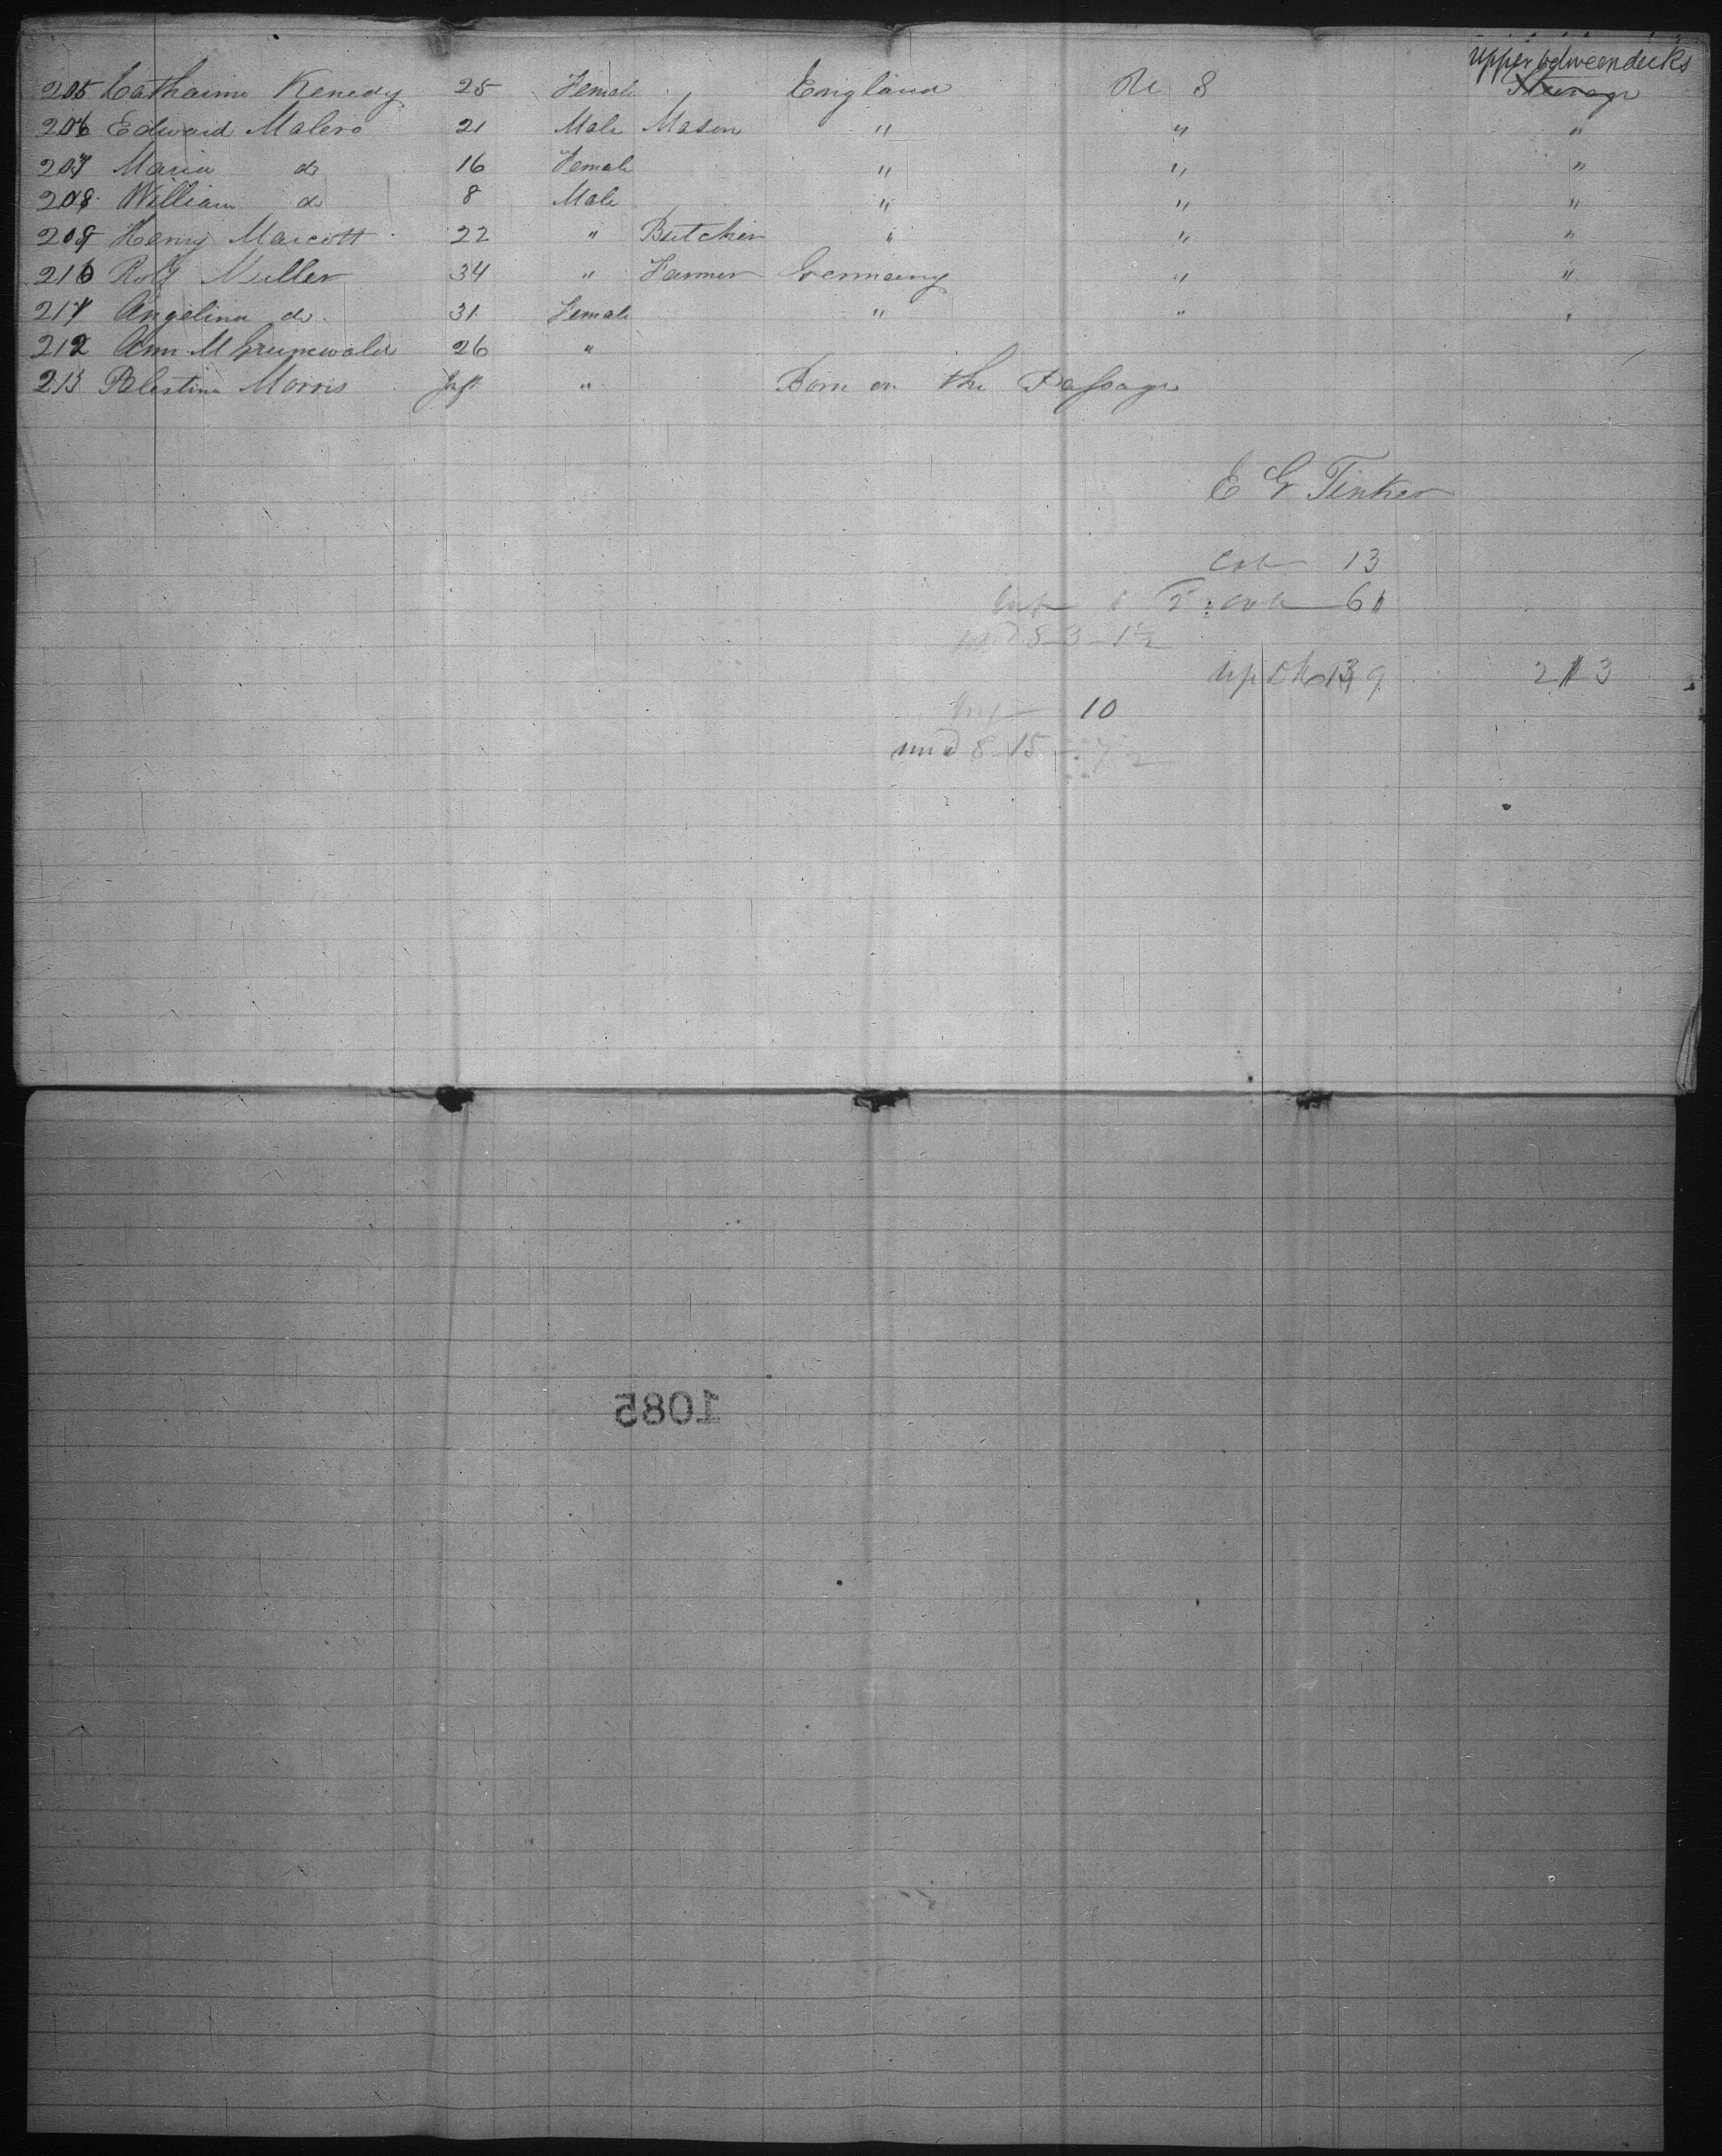 Upper betweendecks
205 Catharine Kenedy 25 Female England Do 8 Steerage
206 Edward Malero 21 Male Mason " " "
207 Maria do 16 Female " " "
208 William do 8 Male " " "
209 Henry Marcott 22 " Butcher " " "
210 Rolf Muller 34 " Farmer Germany " "
211 Angelina do 31 Female " " "
212 Ann M Grunewald 26 "
213 Palestina Morris Inft " Born on the Passage
E G Tinker
Cab 13
61
Up Dk 139 213
10
und 8 15
1085